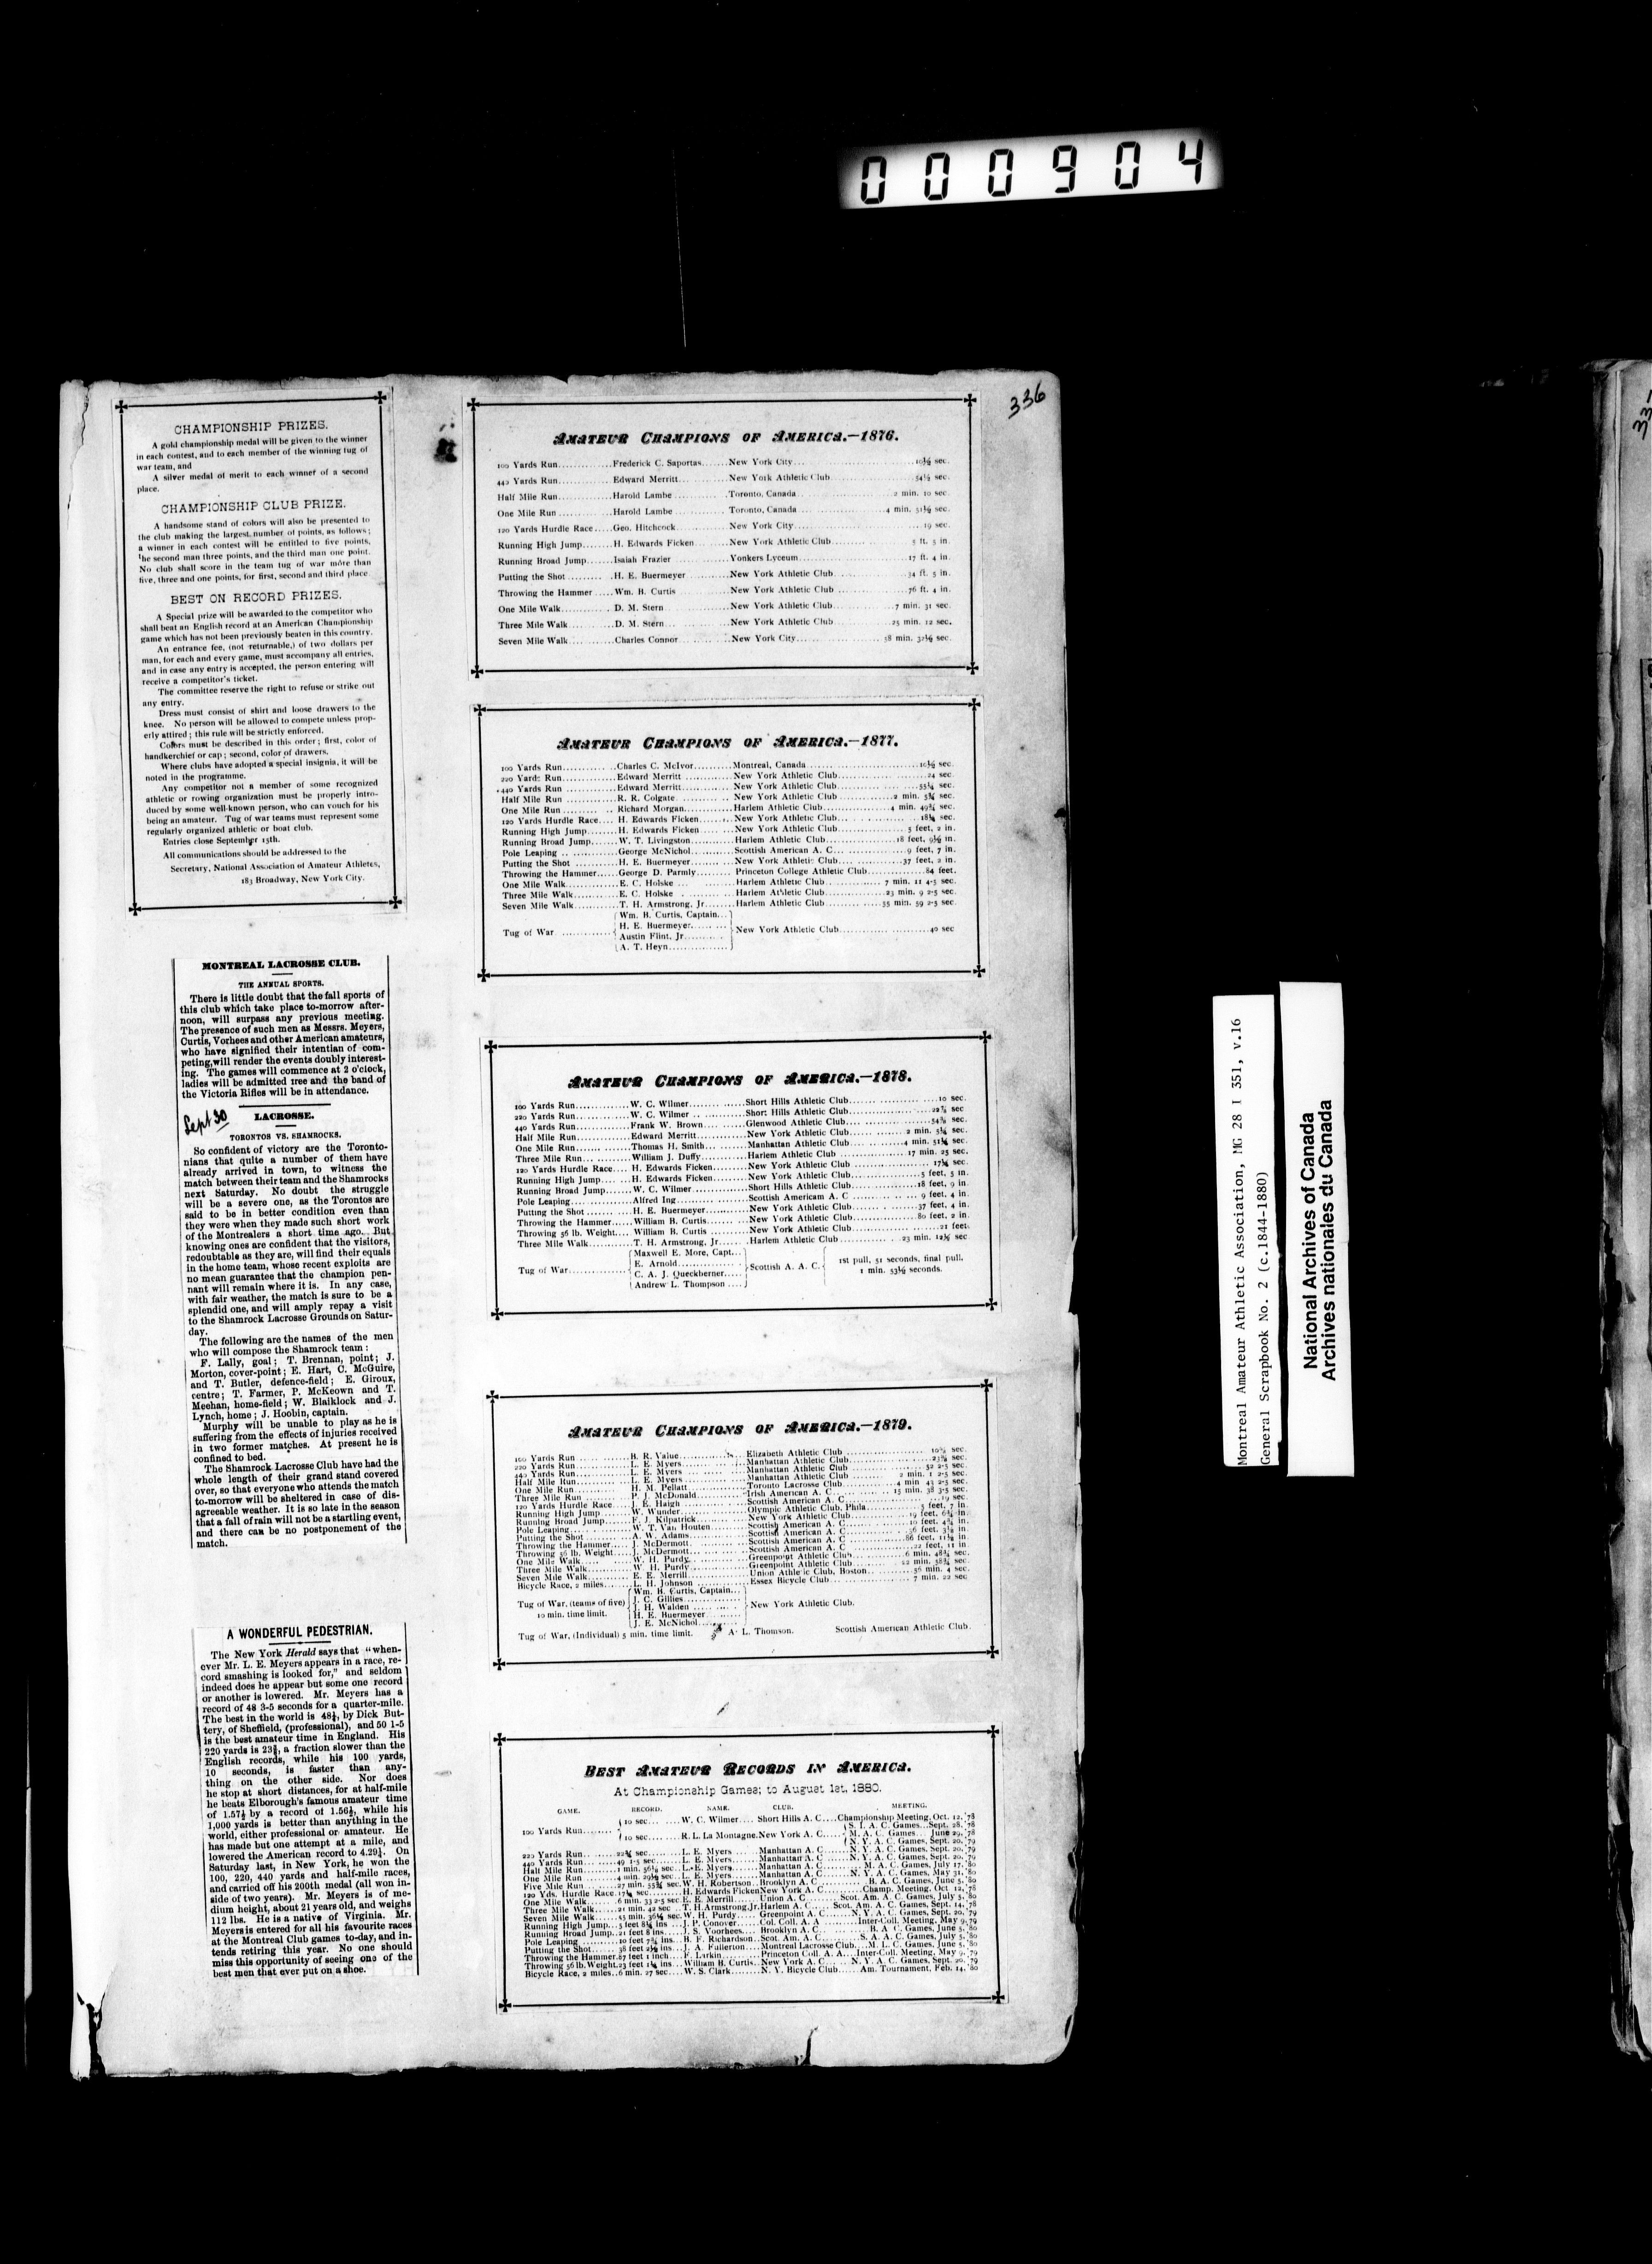 000904
336
CHAMPIONSHIP PRIZES.
A gold championship medal will be given to the winner
in each contest, and to each member of the winning tug of
war team, and
A silver medal of merit to each winner of a second
place.
CHAMPIONSHIP CLUB PRIZE.
A handsome stand of colors will also be presented to
the club making the largest number of points, as follows;
a winner in each contest will be entitled to five points,
the second man three points, and the third man one point.
No club shall score in the team tug of war more than
five, three and one points, for first, second and third place
BEST ON RECORD PRIZES.
A Special prize will be awarded to the competitor who
shall beat an English record at an American Championship
game which has not been previously beaten in this country.
An entrance fee, (not returnable,) of two dollars per
man, for each and every game, must accompany all entries,
and in case any entry is accepted, the person entering will
receive a competitor's ticket.
The committee reserve the right to refuse or strike out
any entry.
Dress must consist of shirt and loose drawers to the
knee. No person will be allowed to compete unless prop-
erly attired; this rule will be strictly enforced.
Colors must be described in this order; first, color of
handkerchief or cap; second, color of drawers.
Where clubs have adopted a special insignia, it will be
noted in the programme.
Any competitor not a member of some recognized
athletic or rowing organization must be properly intro-
duced by some well-known person, who can vouch for his
being an amateur. Tug of war teams must represent some
regularly organized athletic or boat club.
Entries close September 15th.
All communications should be addressed to the
Secretary, National Association of Amateur Athletes,
183 Broadway, New York City.
MONTREAL LACROSSE CLUB.
THE ANNUAL SPORTS.
There is little doubt that the fall sports of
this club which take place to-morrow after-
noon, will surpass any previous meeting.
The presence of such men as Messrs. Meyers,
Curtis, Vorhees and other American amateurs,
who have signified their intentian of com-
peting, will render the events doubly interest-
ing. The games will commence at 2 o'clock,
ladies will be admitted free and the band of
the Victoria Rifles will be in attendance.
Sept 30
LACROSSE.
TORONTOS VS. SHAMROCKS.
So confident of victory are the Toronto-
nians that quite a number of them have
already arrived in town, to witness the
match between their team and the Shamrocks
next Saturday. No doubt the struggle
will be a severe one, as the Torontos are
said to be in better condition even than
they were when they made such short work
of the Montrealers a short time ago. But
knowing ones are confident that the visitors,
redoubtable as they are, will find their equals
in the home team, whose recent exploits are
no mean guarantee that the champion pen-
nant will remain where it is. In any case,
with fair weather, the match is sure to be a
splendid one, and will amply repay a visit
to the Shamrock Lacrosse Grounds on Satur-
day.
The following are the names of the men
who will compose the Shamrock team:
F. Lally, goal; T. Brennan, point; J.
Morton, cover-point; E. Hart, C. McGuire,
and T. Butler, defence-field; E. Giroux,
centre; T. Farmer, P. McKeown and T.
Meehan, home-field; W. Blaiklock and J.
Lynch, home; J. Hoobin, captain.
Murphy will be unable to play as he is
suffering from the effects of injuries received
in two former matches. At present he is
confined to bed.
The Shamrock Lacrosse Club have had the
whole length of their grand stand covered
over, so that everyone who attends the match
to-morrow will be sheltered in case of dis-
agreeable weather. It is so late in the season
that a fall of rain will not be a startling event,
and there can be no postponement of the
match.
A WONDERFUL PEDESTRIAN.
The New York Herald says that "when-
ever Mr. L. E. Meyers appears in a race, re-
cord smashing is looked for," and seldom
indeed does he appear but some one record
or another is lowered. Mr. Meyers has a
record of 48 3-5 seconds for a quarter-mile.
The best in the world is 48¼, by Dick But-
tery, of Sheffield, (professional), and 50 1-5
is the best amateur time in England. His
220 yards is 23¾, a fraction slower than the
English records, while his 100 yards,
10 seconds, is faster than any-
thing on the other side. Nor does
he stop at short distances, for at half-mile
he beats Elborough's famous amateur time
of 1.57½ by a record of 1.56¼, while his
1,000 yards is better than anything in the
world, either professional or amateur. He
has made but one attempt at a mile, and
lowered the American record to 4.29½. On
Saturday last, in New York, he won the
100, 220, 440 yards and half-mile races,
and carried off his 200th medal (all won in-
side of two years). Mr. Meyers is of me-
dium height, about 21 years old, and weighs
112 lbs. He is a native of Virginia. Mr.
Meyers is entered for all his favourite races
at the Montreal Club games to-day, and in-
tends retiring this year. No one should
miss this opportunity of seeing one of the
best men that ever put on a shoe.
AMATEUR CHAMPIONS OF AMERICA.—1876.
100 Yards Run Frederick C. Saportas New York City 10½ sec.
440 Yards Run Edward Merritt New York Athletic Club 54½ sec.
Half Mile Run Harold Lambe Toronto, Canada 2 min. 10 sec.
One Mile Run Harold Lambe Toronto, Canada 4 min. 51½ sec.
120 Yards Hurdle Race Geo. Hitchcock New York City 19 sec.
Running High Jump H. Edwards Ficken New York Athletic Club 5 ft. 5 in.
Running Broad Jump Isaiah Frazier Yonkers Lyceum 17 ft. 4 in.
Putting the Shot H. E. Buermeyer New York Athletic Club 34 ft. 5 in.
Throwing the Hammer Wm. B. Curtis New York Athletic Club 76 ft. 4 in.
One Mile Walk D. M. Stern New York Athletic Club 7 min. 31 sec.
Three Mile Walk D. M. Stern New York Athletic Club 25 min. 12 sec.
Seven Mile Walk Charles Connor New York City 58 min. 32½ sec.
AMATEUR CHAMPIONS OF AMERICA.—1877.
100 Yards Run Charles C. McIvor Montreal, Canada 10½ sec.
220 Yards Run Edward Merritt New York Athletic Club 24 sec.
440 Yards Run Edward Merritt New York Athletic Club 55¼ sec.
Half Mile Run R. R. Colgate New York Athletic Club 2 min. 5¾ sec.
One Mile Run Richard Morgan Harlem Athletic Club 4 min. 49¾ sec.
120 Yards Hurdle Race H. Edwards Ficken New York Athletic Club 18¼ sec.
Running High Jump H. Edwards Ficken New York Athletic Club 5 feet, 2 in.
Running Broad Jump W. T. Livingston Harlem Athletic Club 18 feet, 9½ in.
Pole Leaping George McNichol Scottish American A. C. 9 feet, 7 in.
Putting the Shot H. E. Buermeyer New York Athletic Club 37 feet, 2 in.
Throwing the Hammer George D. Parmly Princeton College Athletic Club 84 feet.
One Mile Walk E. C. Holske Harlem Athletic Club 7 min. 11 4-5 sec.
Three Mile Walk E. C. Holske Harlem Athletic Club 23 min. 9 2-5 sec.
Seven Mile Walk T. H. Armstrong, Jr Harlem Athletic Club 55 min. 59 2-5 sec.
Wm. B. Curtis, Captain
H. E. Buermeyer
Tug of War New York Athletic Club 40 sec
Austin Flint, Jr
A. T. Heyn
AMATEUR CHAMPIONS OF AMERICA.—1878.
100 Yards Run W. C. Wilmer Short Hills Athletic Club 10 sec.
220 Yards Run W. C. Wilmer Short Hills Athletic Club 22⅞ sec
440 Yards Run Frank W. Brown Glenwood Athletic Club sec.
Half Mile Run Edward Merritt New York Athletic Club 2 min. 5¼ sec.
One Mile Run Thomas H. Smith Manhattan Athletic Club 4 min. 51¼ sec.
Three Mile Run William J. Duffy Harlem Athletic Club 17 min. 25 sec.
120 Yards Hurdle Race H. Edwards Ficken New York Athletic Club 17¼ sec.
Running High Jump H. Edwards Ficken New York Athletic Club 5 feet, 5 in.
Running Broad Jump W. C. Wilmer Short Hills Athletic Club 18 feet, 9 in.
Pole Leaping Alfred Ing Scottish American A. C 9 feet, 4 in.
Putting the Shot H. E. Buermeyer New York Athletic Club 37 feet, 4 in.
Throwing the Hammer William B. Curtis New York Athletic Club 80 feet, 2 in.
Throwing 56 lb. Weight William B. Curtis New York Athletic Club 21 feet.
Three Mile Walk T. H. Armstrong, Jr Harlem Athletic Club 23 min. 12½ sec.
Maxwell E. More, Capt.
E. Arnold
Tug of War Scottish A. A. C. 1st pull, 51 seconds, final pull. 1 min. 53½ seconds.
C. A. J. Queckberner
Andrew L. Thompson
AMATEUR CHAMPIONS OF AMERICA.—1879.
100 Yards Run B. R. Value Elizabeth Athletic Club sec.
220 Yards Run L. E. Myers Manhattan Athletic Club sec.
440 Yards Run L. E. Myers Manhattan Athletic Club 52 2-5 sec.
Half Mile Run L. E. Myers Manhattan Athletic Club 2 min. 1 2-5 sec.
One Mile Run H. M. Pellatt Toronto Lacrosse Club 4 min 43 2-5 sec.
Three Mile Run P. J. McDonald Irish American A. C 15 min. 38 3-5 sec.
120 Yards Hurdle Race J. E. Haigh Scottish American A. C 19 sec.
Running High Jump W. Wunder Olympic Athletic Club, Phila 5 feet, 7 in.
Running Broad Jump F. J. Kilpatrick New York Athletic Club 19 feet, 6¾ in.
Pole Leaping W. T. Van Houten Scottish American A. C 10 feet, 4¾ in.
Putting the Shot A. W. Adams Scottish American A. C 36 feet, 3⅛ in.
Throwing the Hammer J. McDermott Scottish American A. C 86 feet, 11½ in
Throwing 56 lb. Weight J. McDermott Scottish American A. C 22 feet, 11 in
One Mile Walk W. H. Purdy Greenpoint Athletic Club 6 min. 48¾ sec.
Three Mile Walk W. H. Purdy Greenpoint Athletic Club 22 min. 58¾ sec.
Seven Mile Walk E. E. Merrill Union Athletic Club, Boston 56 min. 4 sec.
Bicycle Race, 2 miles L. H. Johnson Essex Bicycle Club 7 min. 22 sec
Wm. B. Curtis, Captain
J. C. Gillies
Tug of War, (teams of five) J. H. Walden New York Athletic Club.
10 min. time limit. H. E. Buermeyer
J. E. McNichol
Tug of War, (Individual) 5 min. time limit. A. L. Thomson. Scottish American Athletic Club.
BEST AMATEUR RECORDS IN AMERICA.
At Championship Games; to August 1st, 1880.
GAME. RECORD. NAME. CLUB. MEETING.
100 Yards Run 10 sec. W. C. Wilmer Short Hills A. C Championship Meeting, Oct. 12, '78
S. I. A. C. Games Sept. 28, '78
10 sec. R. L. La Montagne. New York A. C. M. A. C. Games June 29, '78
N. Y. A. C. Games, Sept. 20, '79
220 Yards Run 22¾ sec L. E. Myers Manhattan A. C N. Y. A. C. Games, Sept. 20, '79
440 Yards Run 49 1-5 sec L. E. Myers Manhattan A. C N. Y. A. C. Games, Sept. 20, '79
Half Mile Run 1 min. 56⅛ sec. L. E. Myers Manhattan A. C M. A. C. Games, July 17, '80
One Mile Run 4 min. 29½ sec L. E. Myers Manhattan A. C N. Y. A. C. Games, May 31, '80
Five Mile Run 27 min. 55¾ sec. W. H. Robertson Brooklyn A. C B. A. C. Games, June 5, '80
120 Yds. Hurdle Race 17¼ sec H. Edwards Ficken New York A. C Champ. Meeting, Oct 12, '78
One Mile Walk 6 min. 33 2-5 sec E. E. Merrill Union A. C Scot. Am. A. C. Games, July 5, '80
Three Mile Walk 21 min. 42 sec T. H. Armstrong, Jr. Harlem A. C Scot. Am. A. C. Games, Sept. 14, '78
Seven Mile Walk min. 36¼ sec. W. H. Purdy Greenpoint A. C N. Y. A. C. Games, Sept. 20, '79
Running High Jump 5 feet 8¼ ins J. P. Conover Col. Coll. A. A Inter-Coll. Meeting, May 9, '79
Running Broad Jump 21 feet 8 ins J. S. Voorhees Brooklyn A. C B. A. C. Games, June 5, '80
Pole Leaping 10 feet 7¾ ins B. F. Richardson Scot. Am. A. C S. A. A. C. Games, July 5, '80
Putting the Shot 38 feet 2½ ins J. A. Fullerton Montreal Lacrosse Club M. L. C. Games, June 5, '80
Throwing the Hammer 87 feet 1 inch F. Larkin Princeton Coll. A. A. Inter-Coll. Meeting, May 9, '79
Throwing 56 lb. Weight 23 feet 1¼ ins William B. Curtis New York A. C N. Y. A. C. Games, Sept. 20, '79
Bicycle Race, 2 miles 6 min. 27 sec W. S. Clark N. Y. Bicycle Club Am. Tournament, Feb. 14, '80
Montreal Amateur Athletic Association, MG 28 I 351, v.16
General Scrapbook No. 2 (c.1844-1880)
National Archives of Canada
Archives nationales du Canada